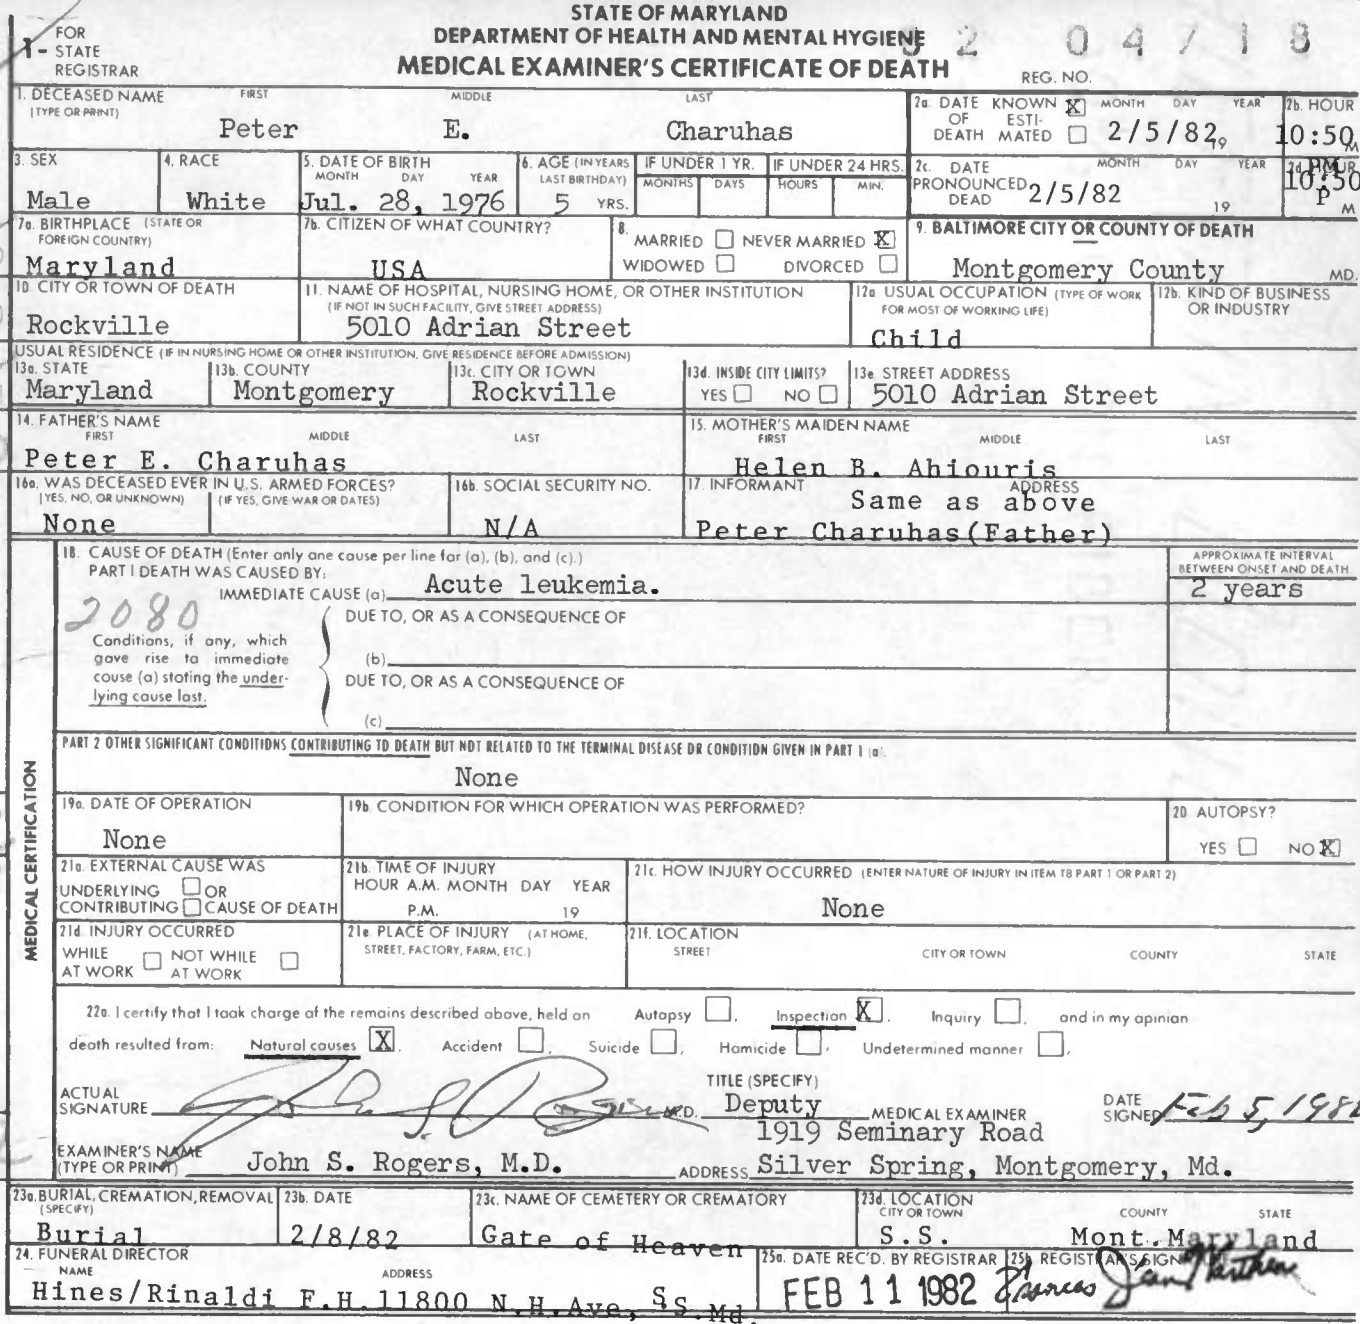 STATE OF MARYLAND
DEPARTMENT OF HEALTH AND MENTAL HYGIENE
MEDICAL EXAMINER'S CERTIFICATE OF DEATH
1- FOR STATE REGISTRAR
REG. NO. 82 04718
1. DECEASED NAME (TYPE OR PRINT) FIRST MIDDLE LAST
Peter E. Charuhas
2a. DATE OF DEATH KNOWN X ESTIMATED MONTH DAY YEAR
2/5/82, 19
2b. HOUR
10:50 PM M
3. SEX
Male
4. RACE
White
5. DATE OF BIRTH MONTH DAY YEAR
Jul. 28, 1976
6. AGE (IN YEARS LAST BIRTHDAY)
5 YRS.
IF UNDER 1 YR. MONTHS DAYS
IF UNDER 24 HRS. HOURS MIN.
2c. DATE PRONOUNCED DEAD MONTH DAY YEAR
2/5/82 19
2d. HOUR
10:50 P M
7a. BIRTHPLACE (STATE OR FOREIGN COUNTRY)
Maryland
7b. CITIZEN OF WHAT COUNTRY?
USA
8. MARRIED NEVER MARRIED X
WIDOWED DIVORCED
9. BALTIMORE CITY OR COUNTY OF DEATH
Montgomery County MD.
10 CITY OR TOWN OF DEATH
Rockville
11. NAME OF HOSPITAL, NURSING HOME, OR OTHER INSTITUTION
(IF NOT IN SUCH FACILITY, GIVE STREET ADDRESS)
5010 Adrian Street
12a USUAL OCCUPATION (TYPE OF WORK FOR MOST OF WORKING LIFE)
Child
12b. KIND OF BUSINESS OR INDUSTRY
USUAL RESIDENCE (IF IN NURSING HOME OR OTHER INSTITUTION, GIVE RESIDENCE BEFORE ADMISSION)
13a. STATE
Maryland
13b. COUNTY
Montgomery
13c. CITY OR TOWN
Rockville
13d. INSIDE CITY LIMITS?
YES NO
13e STREET ADDRESS
5010 Adrian Street
14. FATHER'S NAME FIRST MIDDLE LAST
Peter E. Charuhas
15. MOTHER'S MAIDEN NAME FIRST MIDDLE LAST
Helen B. Ahiouris
16a. WAS DECEASED EVER IN U.S. ARMED FORCES?
(YES, NO, OR UNKNOWN) (IF YES, GIVE WAR OR DATES)
None
16b. SOCIAL SECURITY NO.
N/A
17. INFORMANT ADDRESS
Same as above
Peter Charuhas(Father)
MEDICAL CERTIFICATION
18. CAUSE OF DEATH (Enter only one cause per line for (a), (b), and (c).)
PART I DEATH WAS CAUSED BY:
IMMEDIATE CAUSE (a) Acute leukemia.
APPROXIMATE INTERVAL BETWEEN ONSET AND DEATH
2 years
2080
Conditions, if any, which gave rise to immediate cause (a) stating the underlying cause last.
DUE TO, OR AS A CONSEQUENCE OF
(b)
DUE TO, OR AS A CONSEQUENCE OF
(c)
PART 2 OTHER SIGNIFICANT CONDITIONS CONTRIBUTING TO DEATH BUT NOT RELATED TO THE TERMINAL DISEASE OR CONDITION GIVEN IN PART 1 (a).
None
19a. DATE OF OPERATION
None
19b CONDITION FOR WHICH OPERATION WAS PERFORMED?
20 AUTOPSY?
YES NO X
21a. EXTERNAL CAUSE WAS
UNDERLYING OR
CONTRIBUTING CAUSE OF DEATH
21b. TIME OF INJURY
HOUR A.M. MONTH DAY YEAR
P.M. 19
21c. HOW INJURY OCCURRED (ENTER NATURE OF INJURY IN ITEM 18 PART 1 OR PART 2)
None
21d INJURY OCCURRED
WHILE AT WORK NOT WHILE AT WORK
21e PLACE OF INJURY (AT HOME, STREET, FACTORY, FARM, ETC.)
21f. LOCATION
STREET CITY OR TOWN COUNTY STATE
22a. I certify that I took charge of the remains described above, held an Autopsy , Inspection X, Inquiry , and in my opinion
death resulted from: Natural causes X, Accident , Suicide , Homicide , Undetermined manner ,
ACTUAL SIGNATURE John S. Rogers M.D.
TITLE (SPECIFY)
Deputy MEDICAL EXAMINER
DATE SIGNED Feb 5, 1982
1919 Seminary Road
EXAMINER'S NAME (TYPE OR PRINT) John S. Rogers, M.D.
ADDRESS Silver Spring, Montgomery, Md.
23a. BURIAL, CREMATION, REMOVAL (SPECIFY)
Burial
23b. DATE
2/8/82
23c. NAME OF CEMETERY OR CREMATORY
Gate of Heaven
23d. LOCATION CITY OR TOWN COUNTY STATE
S.S. Mont. Maryland
24. FUNERAL DIRECTOR
NAME ADDRESS
Hines/Rinaldi F.H. 11800 N.H. Ave, S.S. Md.
25a. DATE REC'D. BY REGISTRAR
FEB 11 1982
25b REGISTRAR'S SIGN
Frances Jean